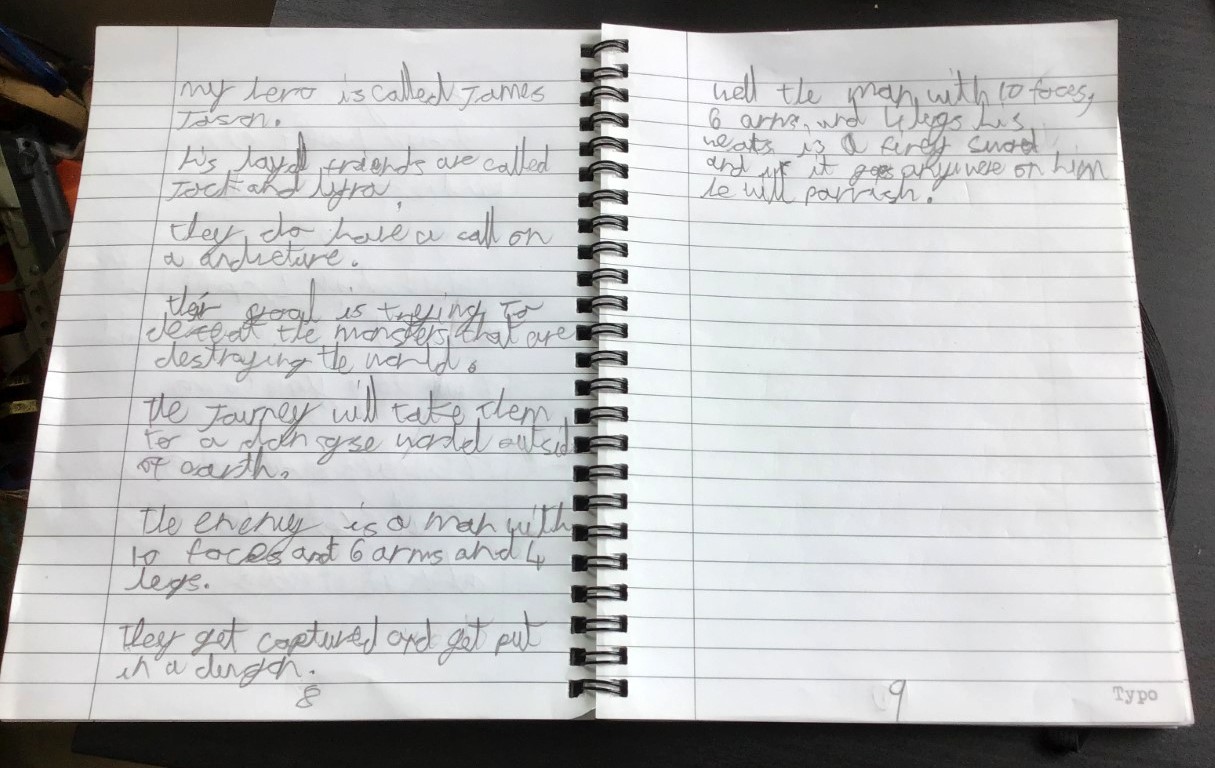 my hero is called James
Jason.
his loyal friends are called
Jock and lyra.
they do have a call on
a andvture.
their goal is trying To
defeat the monsters that are
destraying the world.
the Journey will take them
to a dan gyse world outsid
of earth.
the enemy is a man with
10 faces and 6 arms and 4
legs.
they get captured and get put
in a dungon.
8
well the man with 10 faces,
6 arms, and 4 legs his
weaks is a firey Sword
and if it goes anywere on him
he will parrish.
9
Typo